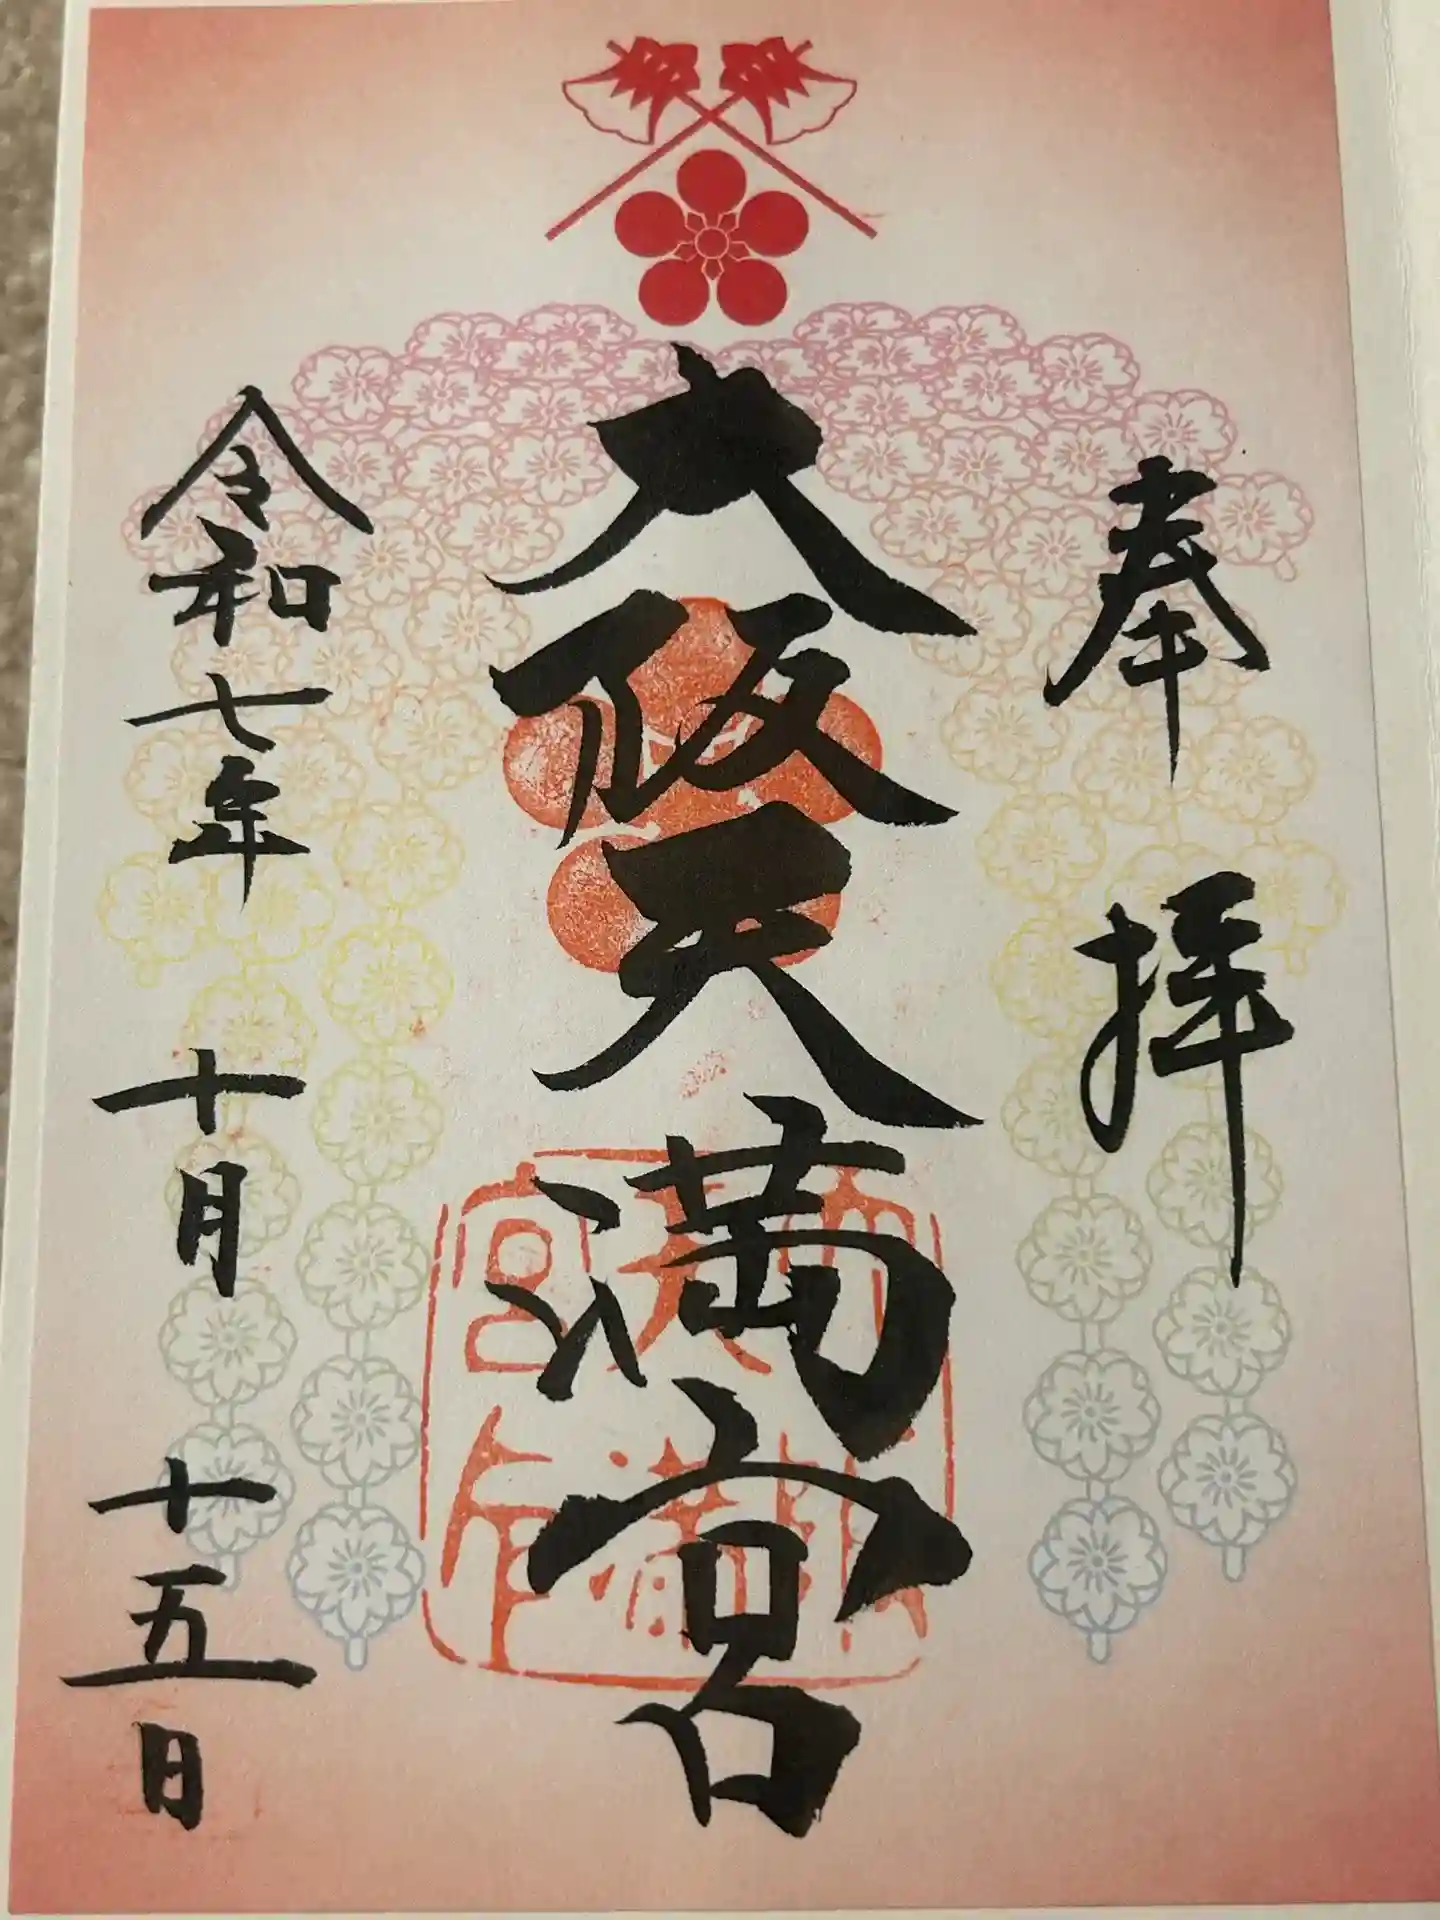 奉拝
大阪天満宮
令和七年十月十五日